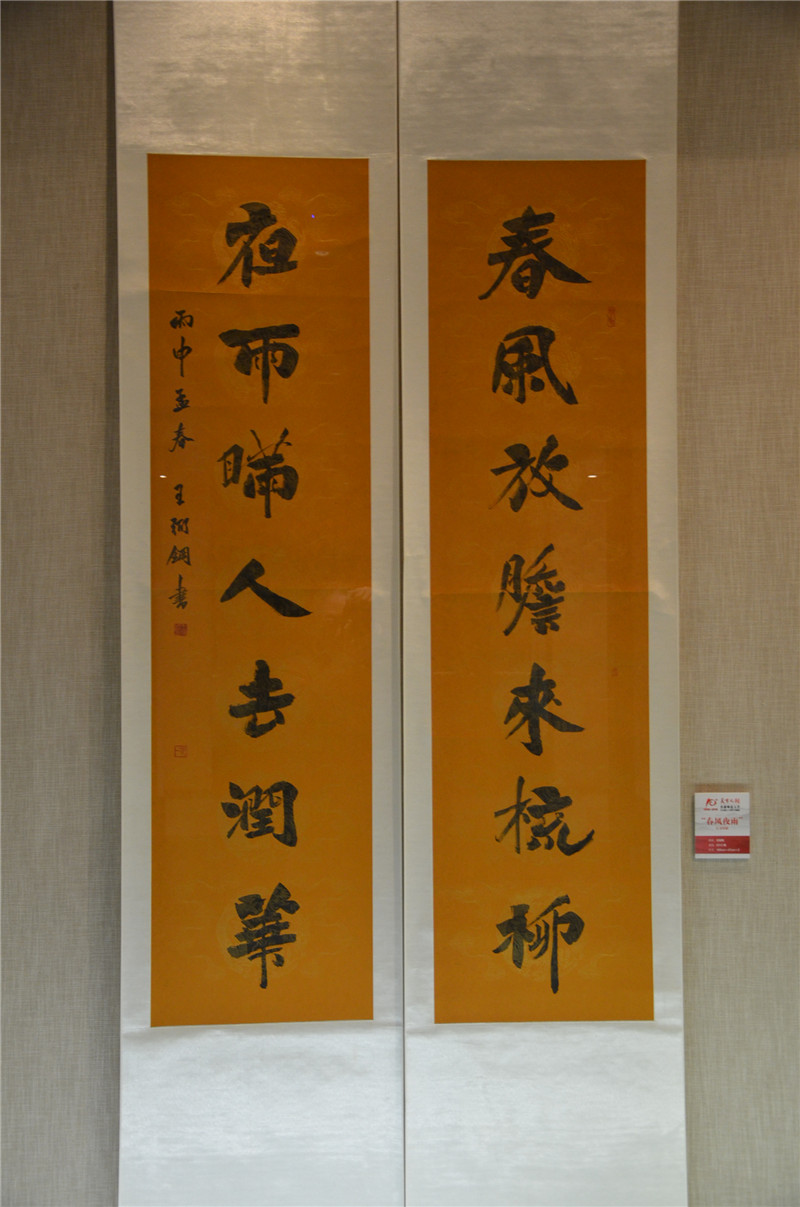 春風放膽來梳柳
夜雨瞞人去潤華
丙申孟春 王 鋼書
“春风夜雨”